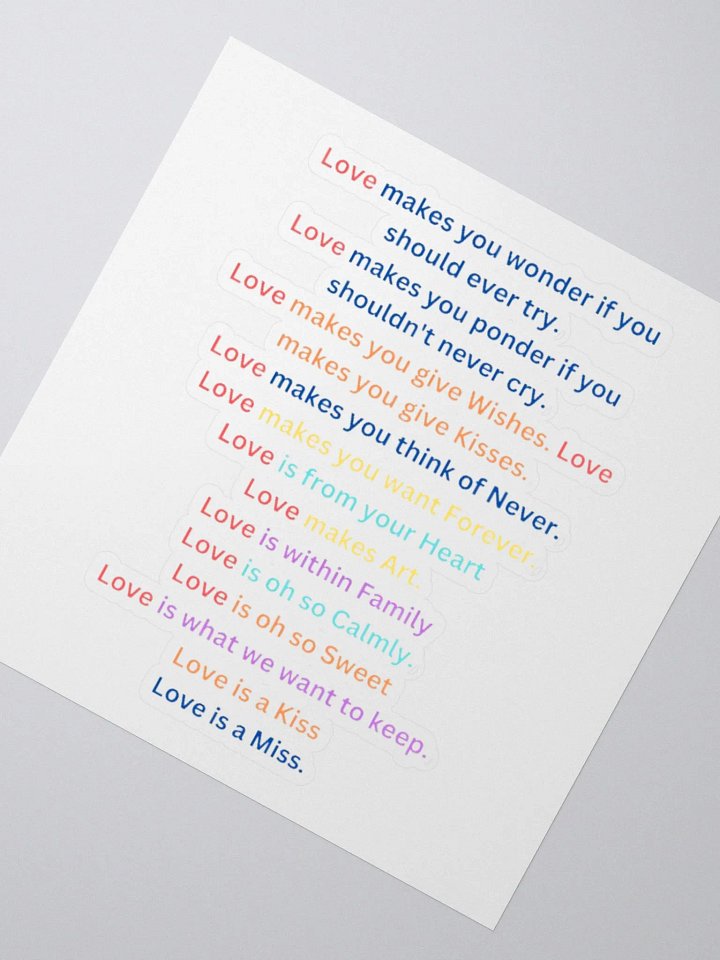 Love makes you wonder if you
should ever try.
Love makes you ponder if you
shouldn't never cry.
Love makes you give Wishes. Love
makes you give Kisses.
Love makes you think of Never.
Love makes you want Forever.
Love is from your Heart
Love makes Art.
Love is within Family
Love is oh so Calmly.
Love is oh so Sweet
Love is what we want to keep.
Love is a Kiss
Love is a Miss.